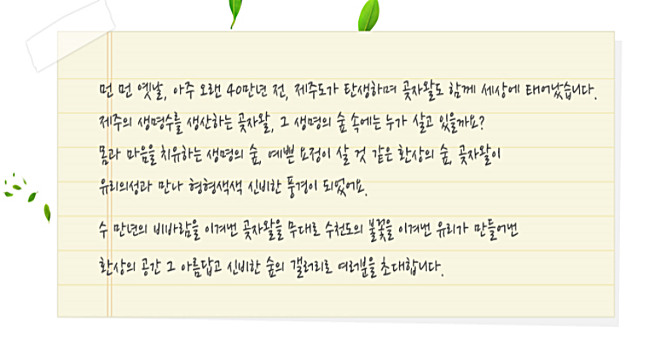 먼 먼 옛날, 아주 오랜 40만년 전, 제주도가 탄생하며 곶자왈도 함께 세상에 태어났습니다.
제주의 생명수를 생산하는 곶자왈, 그 생명의 숲 속에는 누가 살고 있을까요?
몸과 마음을 치유하는 생명의 숲, 예쁜 요정이 살 것 같은 환상의 숲, 곶자왈이
유리의성과 만나 형형색색 신비한 풍경이 되었어요.
수 만년의 비바람을 이겨낸 곶자왈을 무대로 수천도의 불꽃을 이겨낸 유리가 만들어낸
환상의 공간 그 아름답고 신비한 숲의 갤러리로 여러분을 초대합니다.